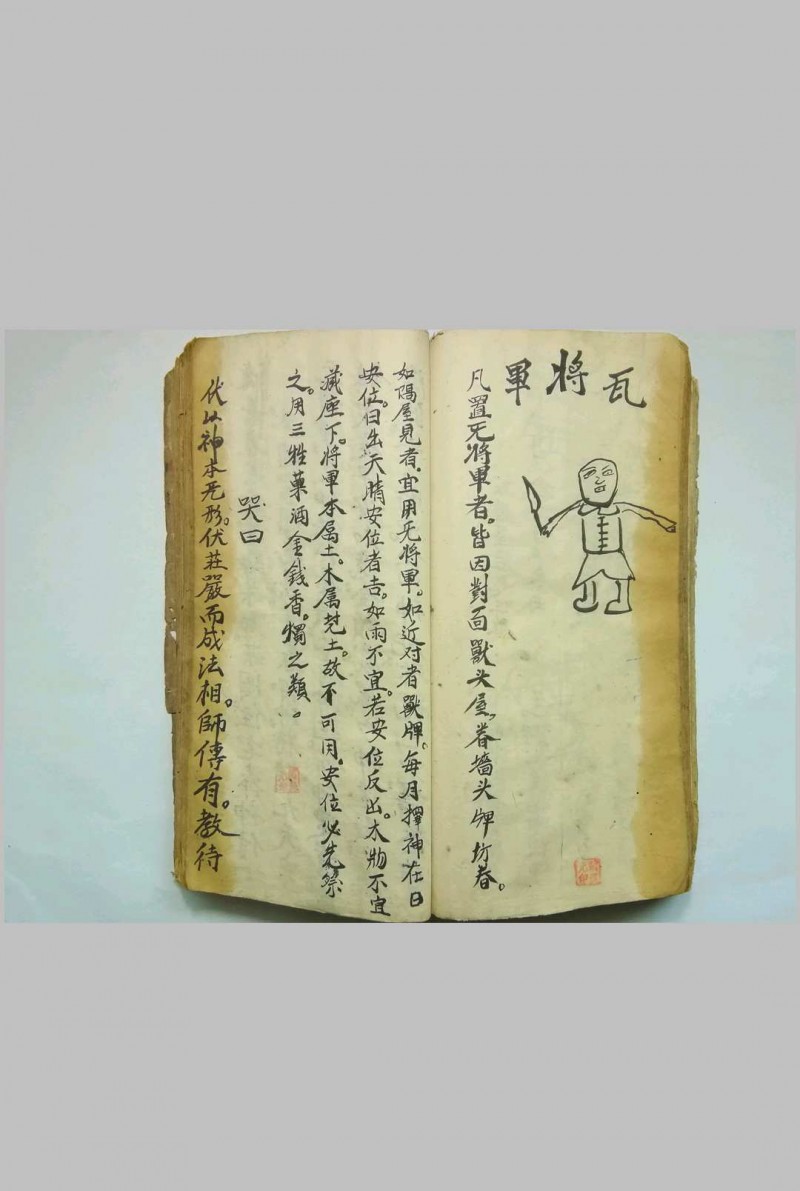 瓦將軍
凡置旡將軍者。皆因對面獸头屋脊墻头牌坊脊。
如隔屋見者。宜用旡將軍。如近对者獸牌。每月擇神在日
安位。日出天晴安位者吉。如雨不宜。若安位反凶。木物不宜
藏座下。將軍本属土。木属尅土。故不可用。安位必先祭
之。用三牲菓酒金錢香。燭之類。
哭曰
伏以神本旡形。伏莊嚴而成法相。師傳有。教待